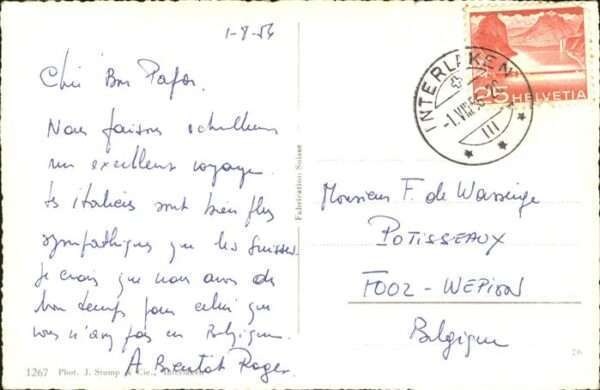 1-8-56
Cher Bon Papa.
Nous faisons actuellement
un excellent voyage.
Les italiens sont bien plus
sympathiques que les Suisses.
Je crois que nous avons du
bon temps pour celui que
vous n'avez pas en Belgique.
A Bientot Roger
1267 Phot. J. Stump & Cie.,
Fabrication Suisse
INTERLAKEN
-1.VIII.56
III
25 HELVETIA
Monsieur F. de
POTISSEAUX
FOOZ-WEPION
Belgique